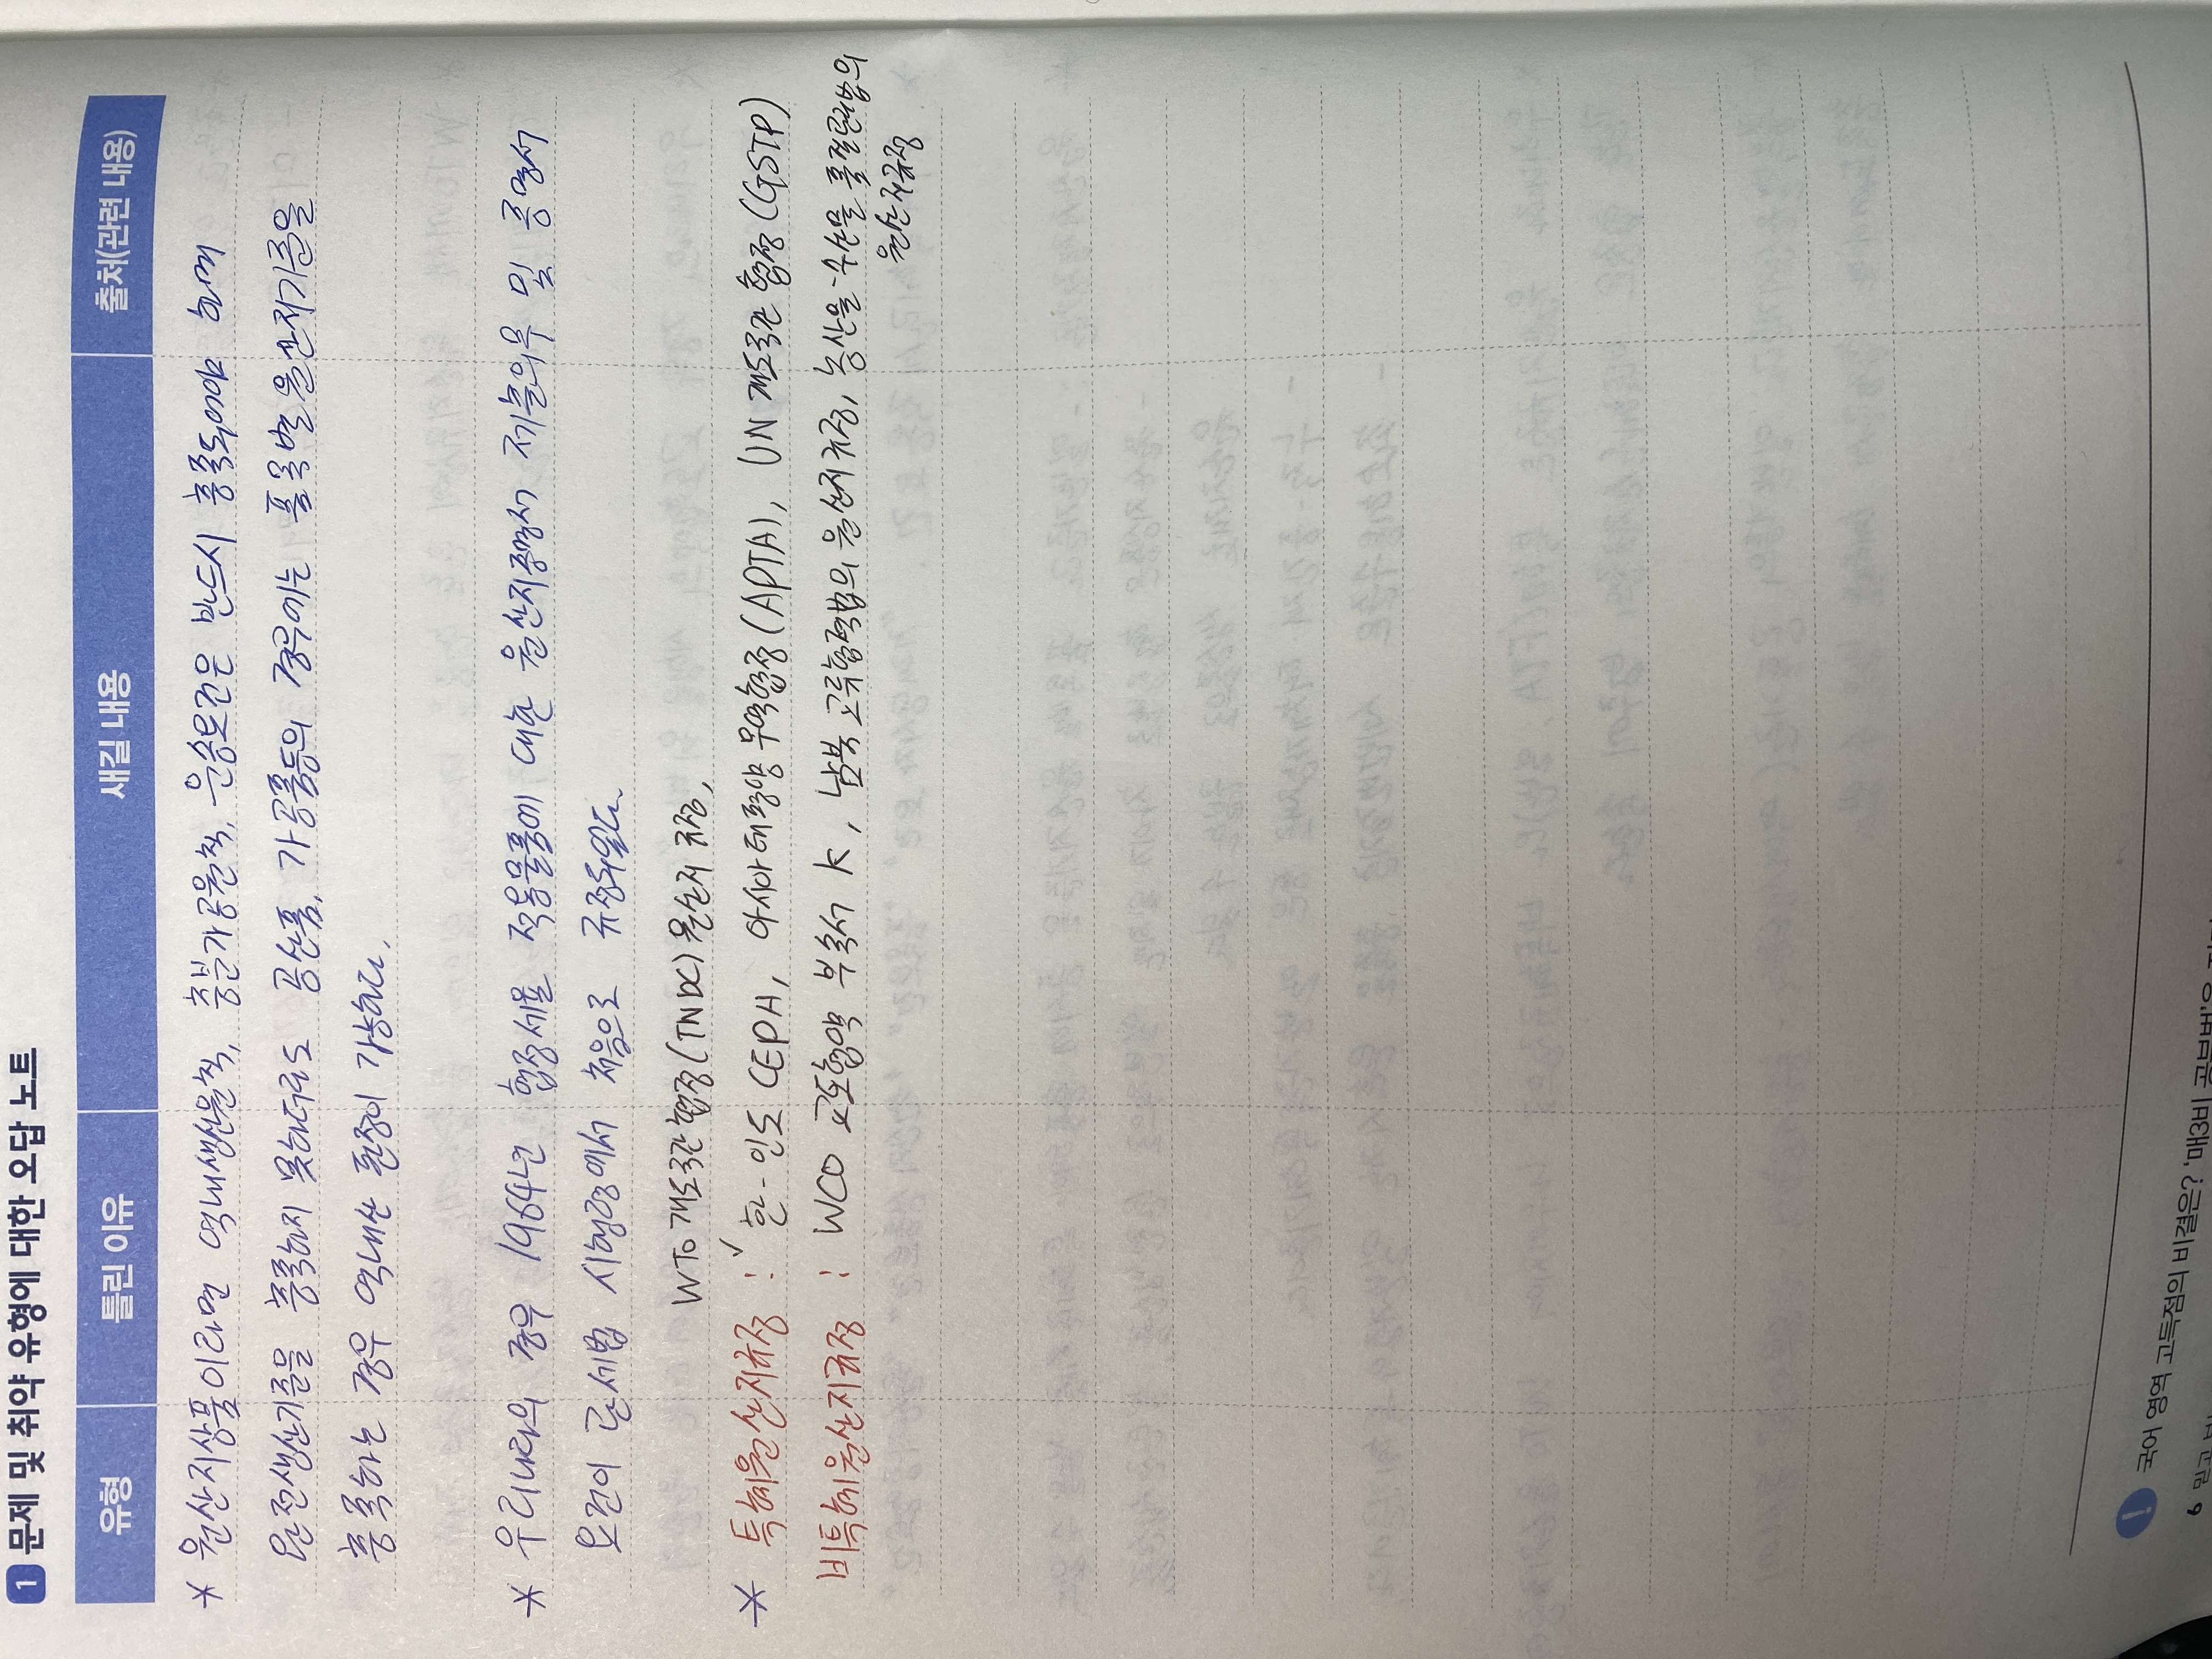 1 문제 및 취약 유형에 대한 오답 노트
유형 틀린 이유 새길 내용 출처(관련 내용)
* 원산지상품이라면 역내생산원칙, 충분가공원칙, 운송요건은 반드시 충족되어야 하며
완전생산기준을 충족하지 못하더라도 공산품, 가공품등의 경우에는 품목별 원산지기준을
충족하는 경우 역내산 판정이 가능하다.
* 우리나라의 경우 1964년 협정세율 적용물품에 대한 원산지증명서 제출의무 및 증명서
요건이 관세법 시행령에서 처음으로 규정되었다.
WTO 개도국간 협정(TNDC) 원산지 규정,
* 특혜원산지규정 : 한-인도 CEPA, 아시아 태평양 무역협정 (APTA), UN 개도국간 협정 (GSTP)
비특혜원산지규정 : WCO 교토협약 부속서 K, 남북교류협력법의 원산지규정, 농산물·수산물 품질관리법의
원산지규정
! 국어 영역 고득점의 비결은? '매3비 공부법'을
6